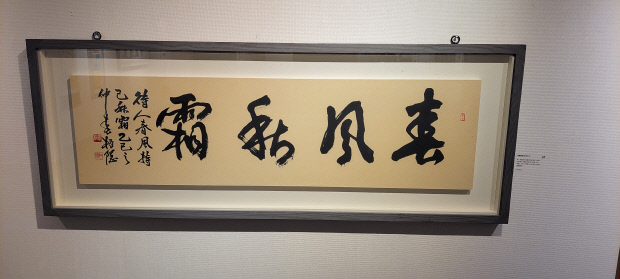 春風秋霜
待人春風持
己秋霜乙巳之
仲